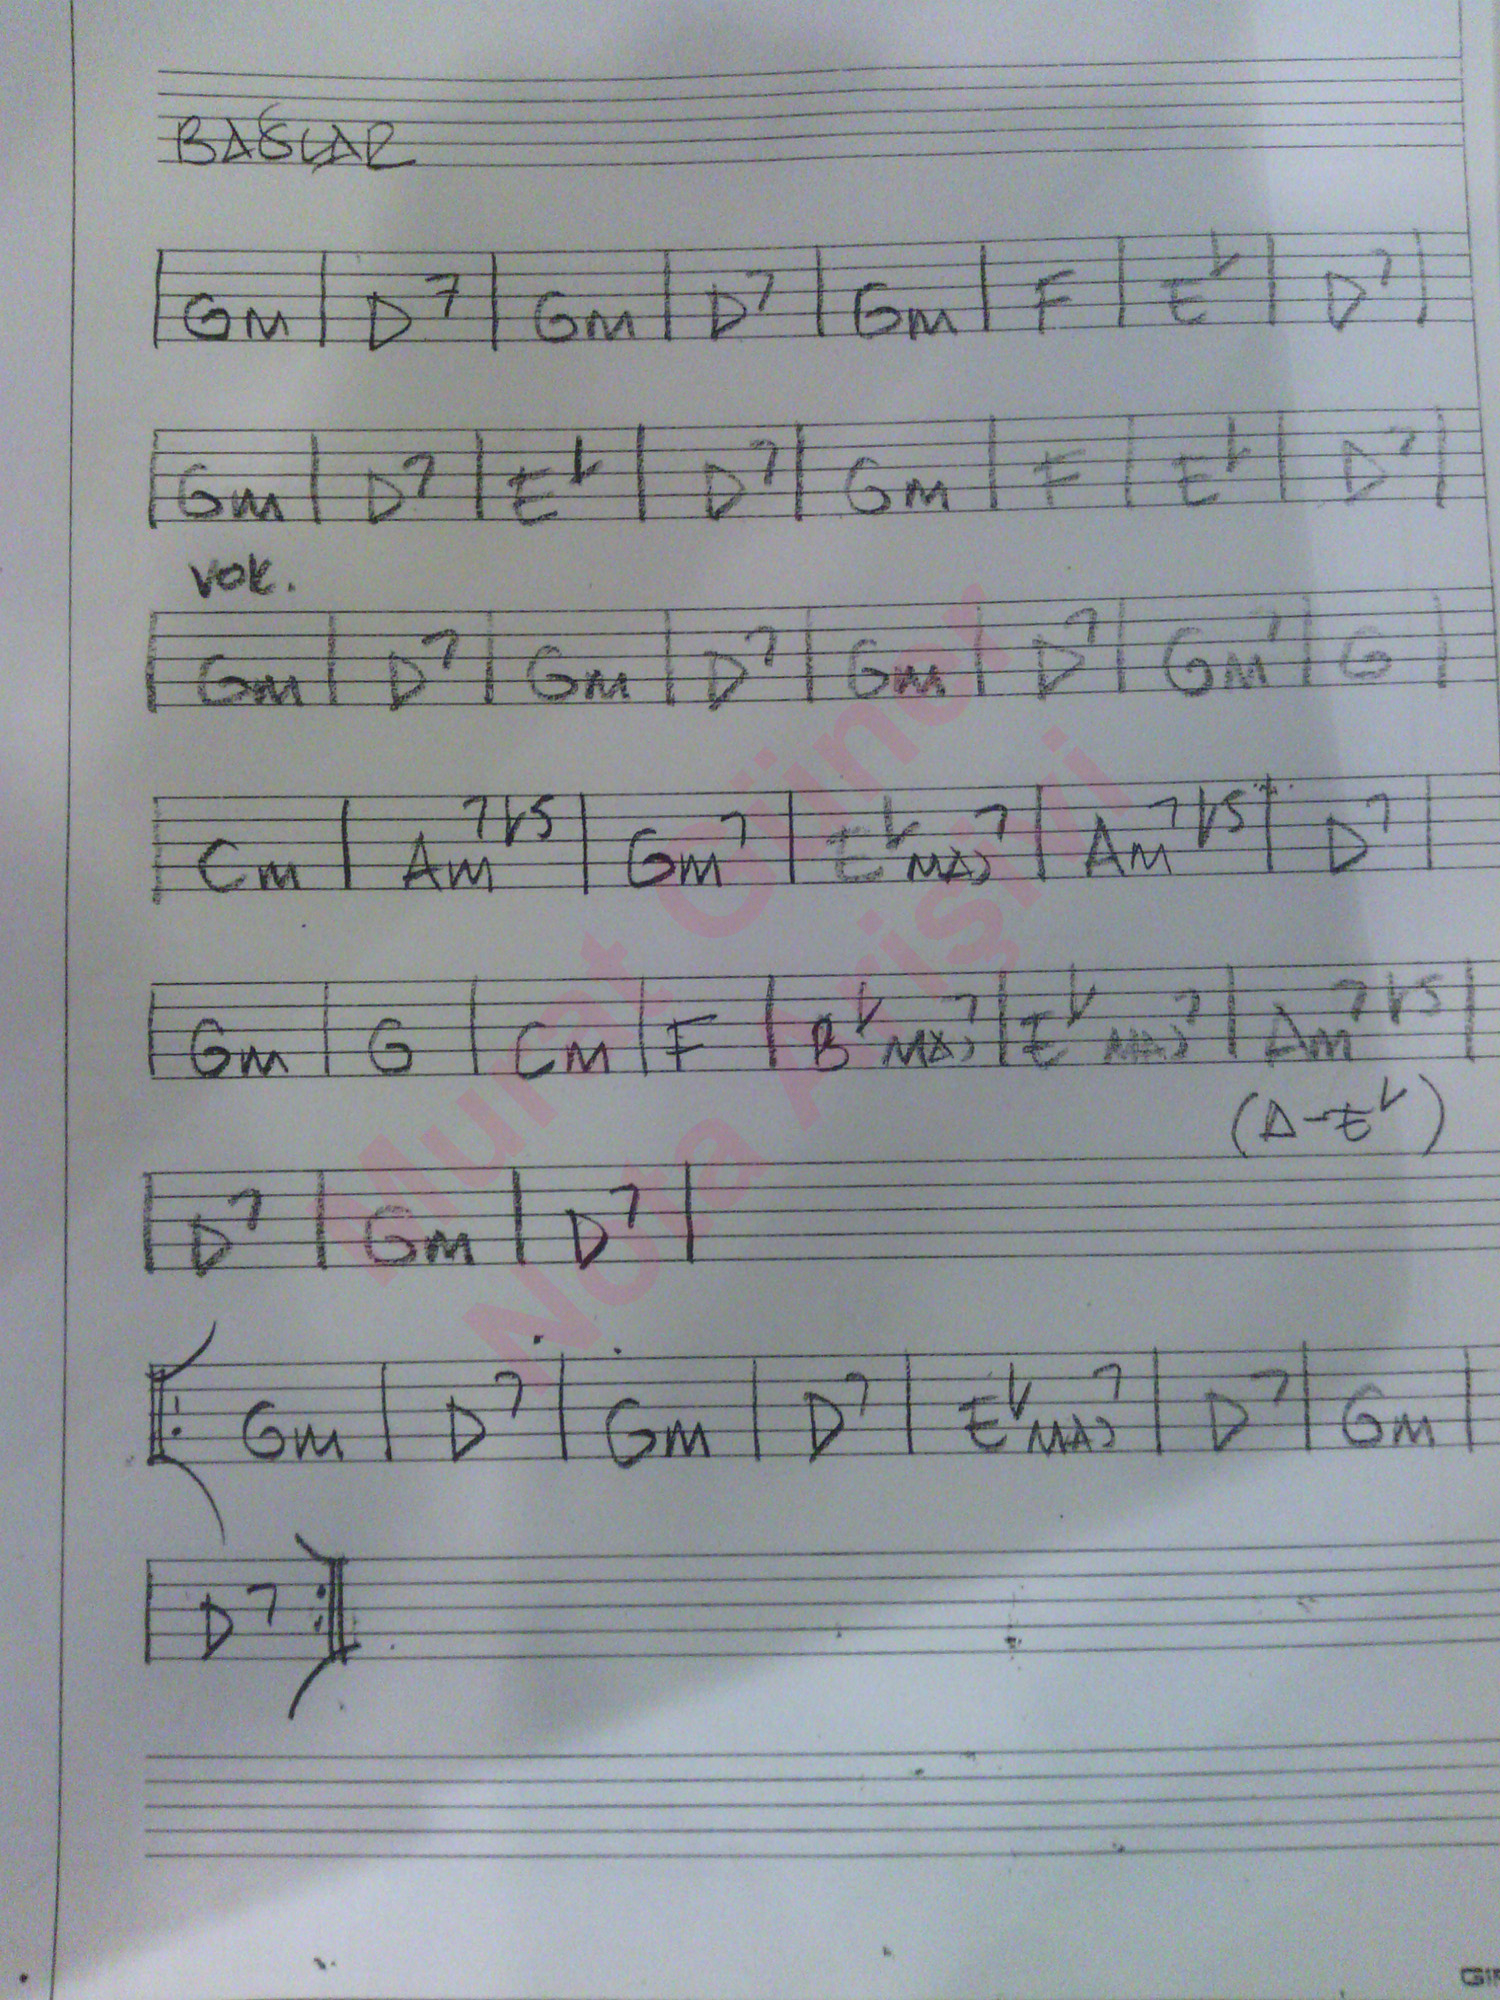 BAĞLAR
Gm | D7 | Gm | D7 | Gm | F | E♭ | D7 |
Gm | D7 | E♭ | D7 | Gm | F | E♭ | D7 |
VOK.
Gm | D7 | Gm | D7 | Gm | D7 | Gm7 | G |
Cm | Am7♭5 | Gm7 | E♭MAJ7 | Am7♭5 | D7 |
Gm | G | Cm | F | B♭MAJ7 | E♭MAJ7 | Am7♭5 |
(A-E♭)
D7 | Gm | D7 |
Gm | D7 | Gm | D7 | E♭MAJ7 | D7 | Gm |
D7
Murat Güner
Nota Arişivi